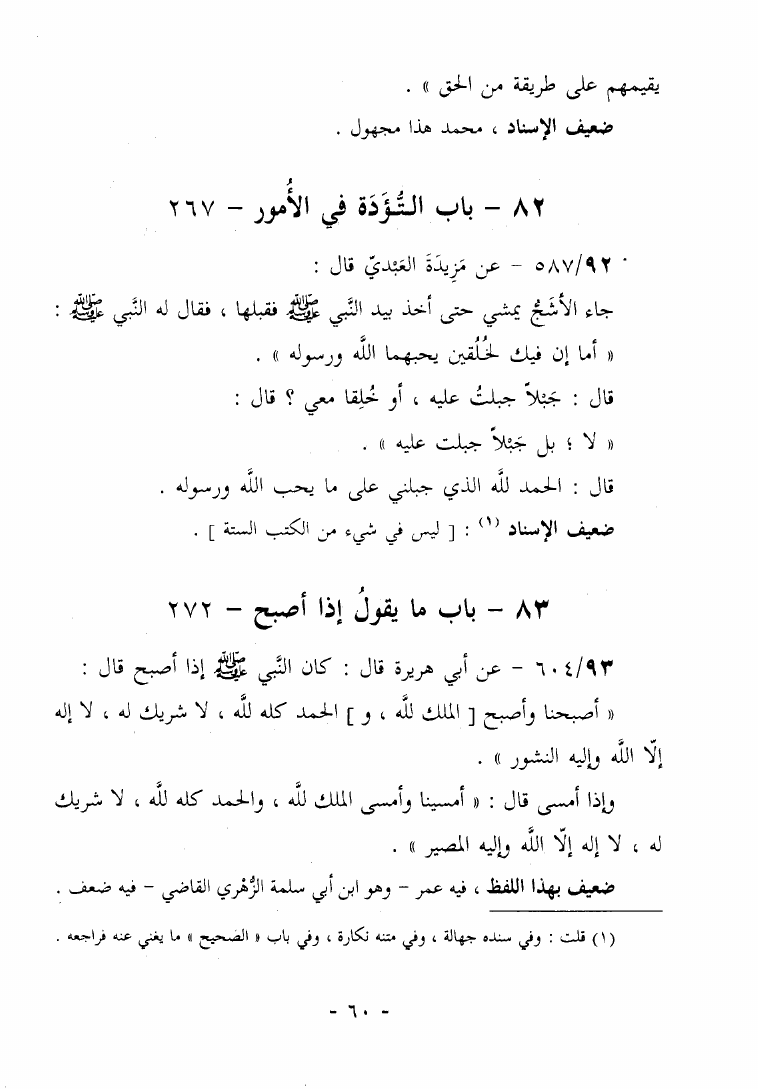 يقيمهم على طريقة من الحق » .
ضعيف الإسناد ، محمد هذا مجهول .
٨٢ – باب التُّؤَدَة في الأُمور – ٢٦٧
٥٨٧/٩٢ – عن مَزِيدَةَ العَبْديّ قال :
جاء الأشَجُّ يمشي حتى أخذ بيد النَّبي ﷺ فقبلها ، فقال له النَّبي ﷺ :
« أما إن فيك لخُلُقين يحبهما اللَّه ورسوله » .
قال : جَبْلاً جبلتُ عليه ، أو خُلِقا معي ؟ قال :
« لا ؛ بل جَبْلاً جبلت عليه » .
قال : الحمد للَّه الذي جبلني على ما يحب اللَّه ورسوله .
ضعيف الإسناد (١) : [ ليس في شيء من الكتب الستة ] .
٨٣ – باب ما يقولُ إذا أصبح – ٢٧٢
٦٠٤/٩٣ – عن أبي هريرة قال : كان النَّبي ﷺ إذا أصبح قال :
« أصبحنا وأصبح [ الملك للَّه ، و ] الحمد كله للَّه ، لا شريك له ، لا إله
إلّا اللَّه وإليه النشور » .
وإذا أمسى قال : « أمسينا وأمسى الملك للَّه ، والحمد كله للَّه ، لا شريك
له ، لا إله إلّا اللَّه وإليه المصير » .
ضعيف بهذا اللفظ ، فيه عمر – وهو ابن أبي سلمة الزُّهْري القاضي – فيه ضعف .
(١) قلت : وفي سنده جهالة ، وفي متنه نكارة ، وفي باب « الصحيح » ما يغني عنه فراجعه .
– ٦٠ –